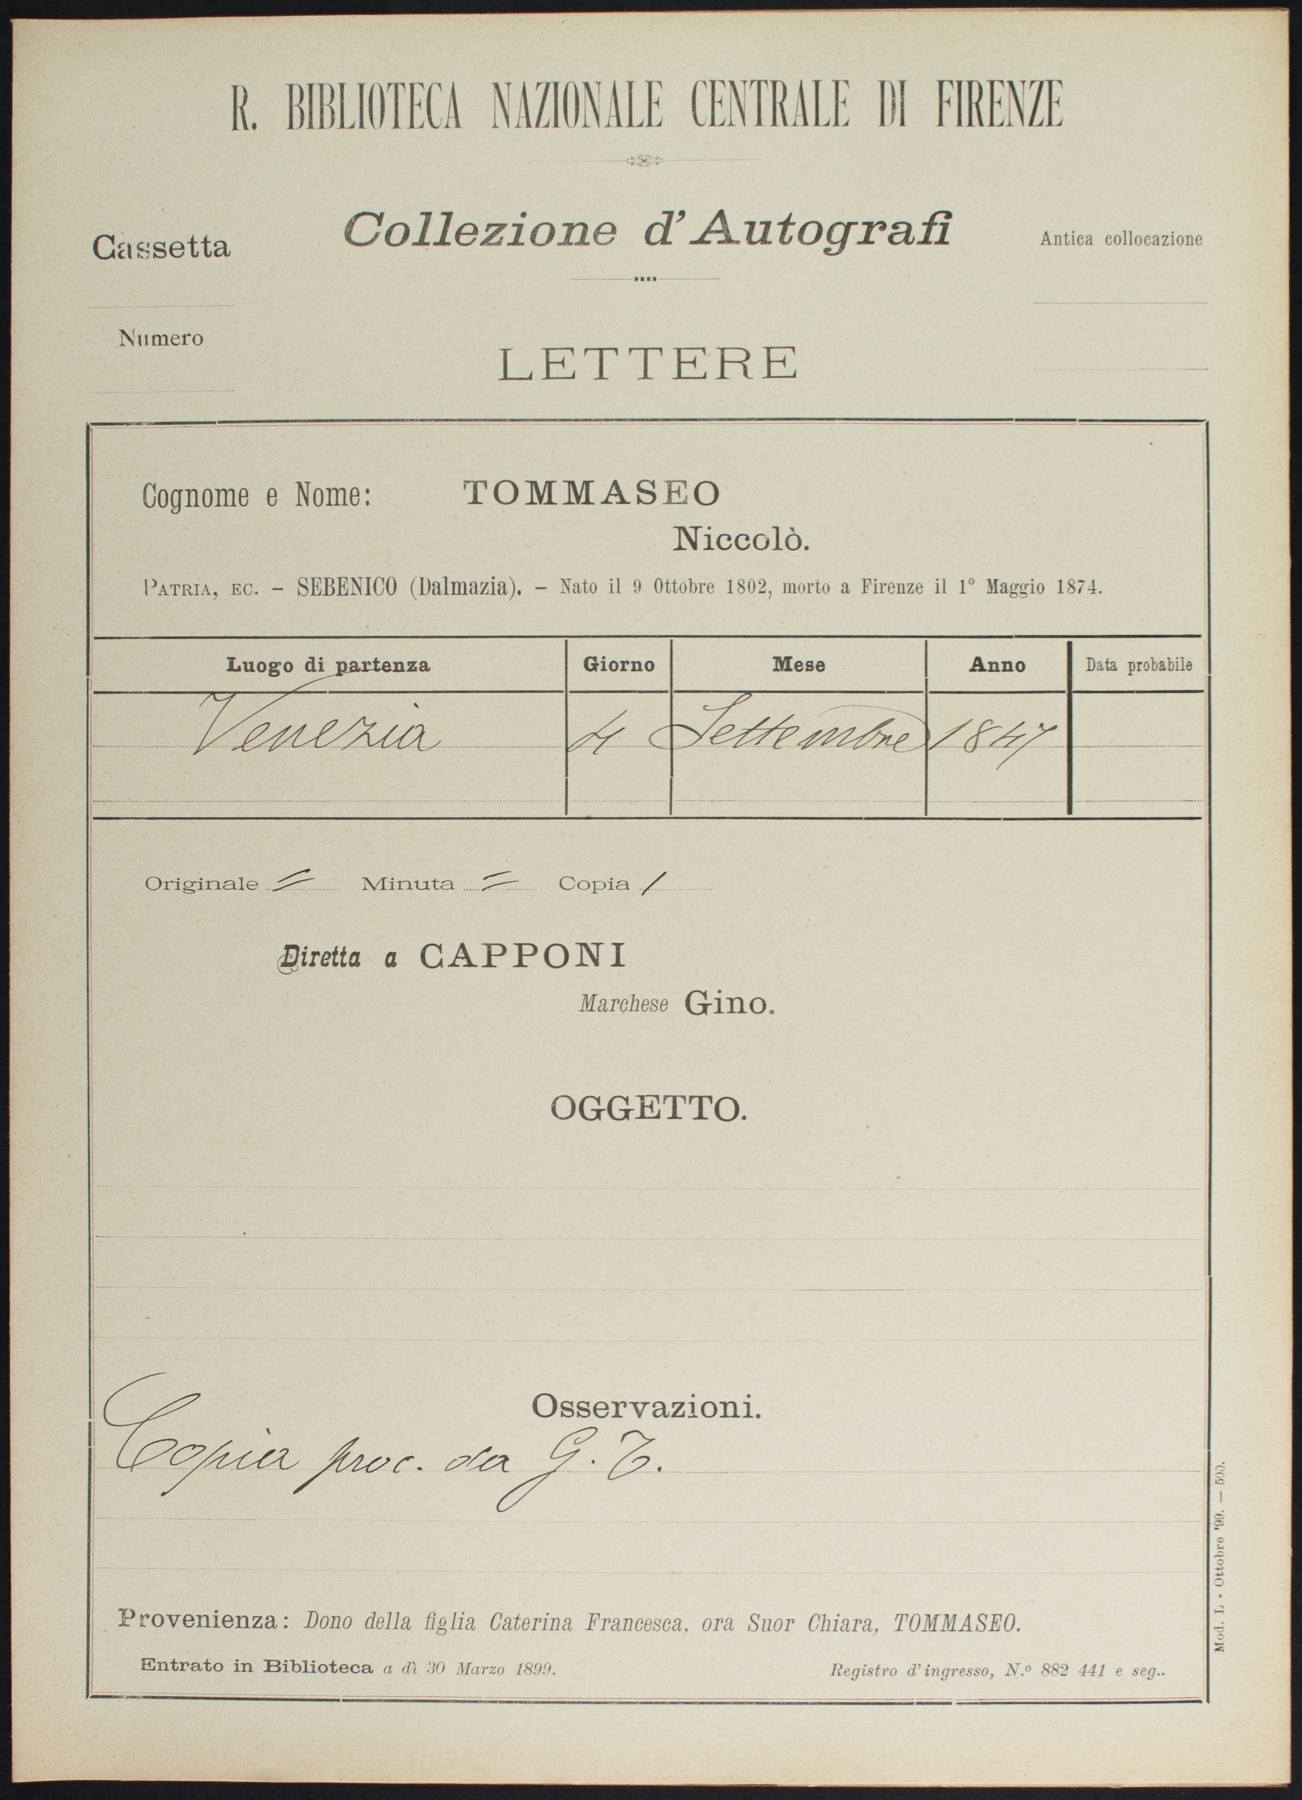 R. BIBLIOTECA NAZIONALE CENTRALE DI FIRENZE
Collezione d'Autografi
Cassetta
Antica collocazione
Numero
LETTERE
Cognome e Nome: TOMMASEO
Niccolò.
PATRIA, EC. – SEBENICO (Dalmazia). – Nato il 9 Ottobre 1802, morto a Firenze il 1° Maggio 1874.
Luogo di partenza Giorno Mese Anno Data probabile
Venezia 4 Settembre 1847
Originale = Minuta = Copia /
Diretta a CAPPONI
Marchese Gino.
OGGETTO.
Osservazioni.
Copia proc. da G. T.
Provenienza: Dono della figlia Caterina Francesca, ora Suor Chiara, TOMMASEO.
Entrato in Biblioteca a dì 30 Marzo 1899.
Registro d'ingresso, N.º 882 441 e seg..
Mod. L - Ottobre '99. — 500.